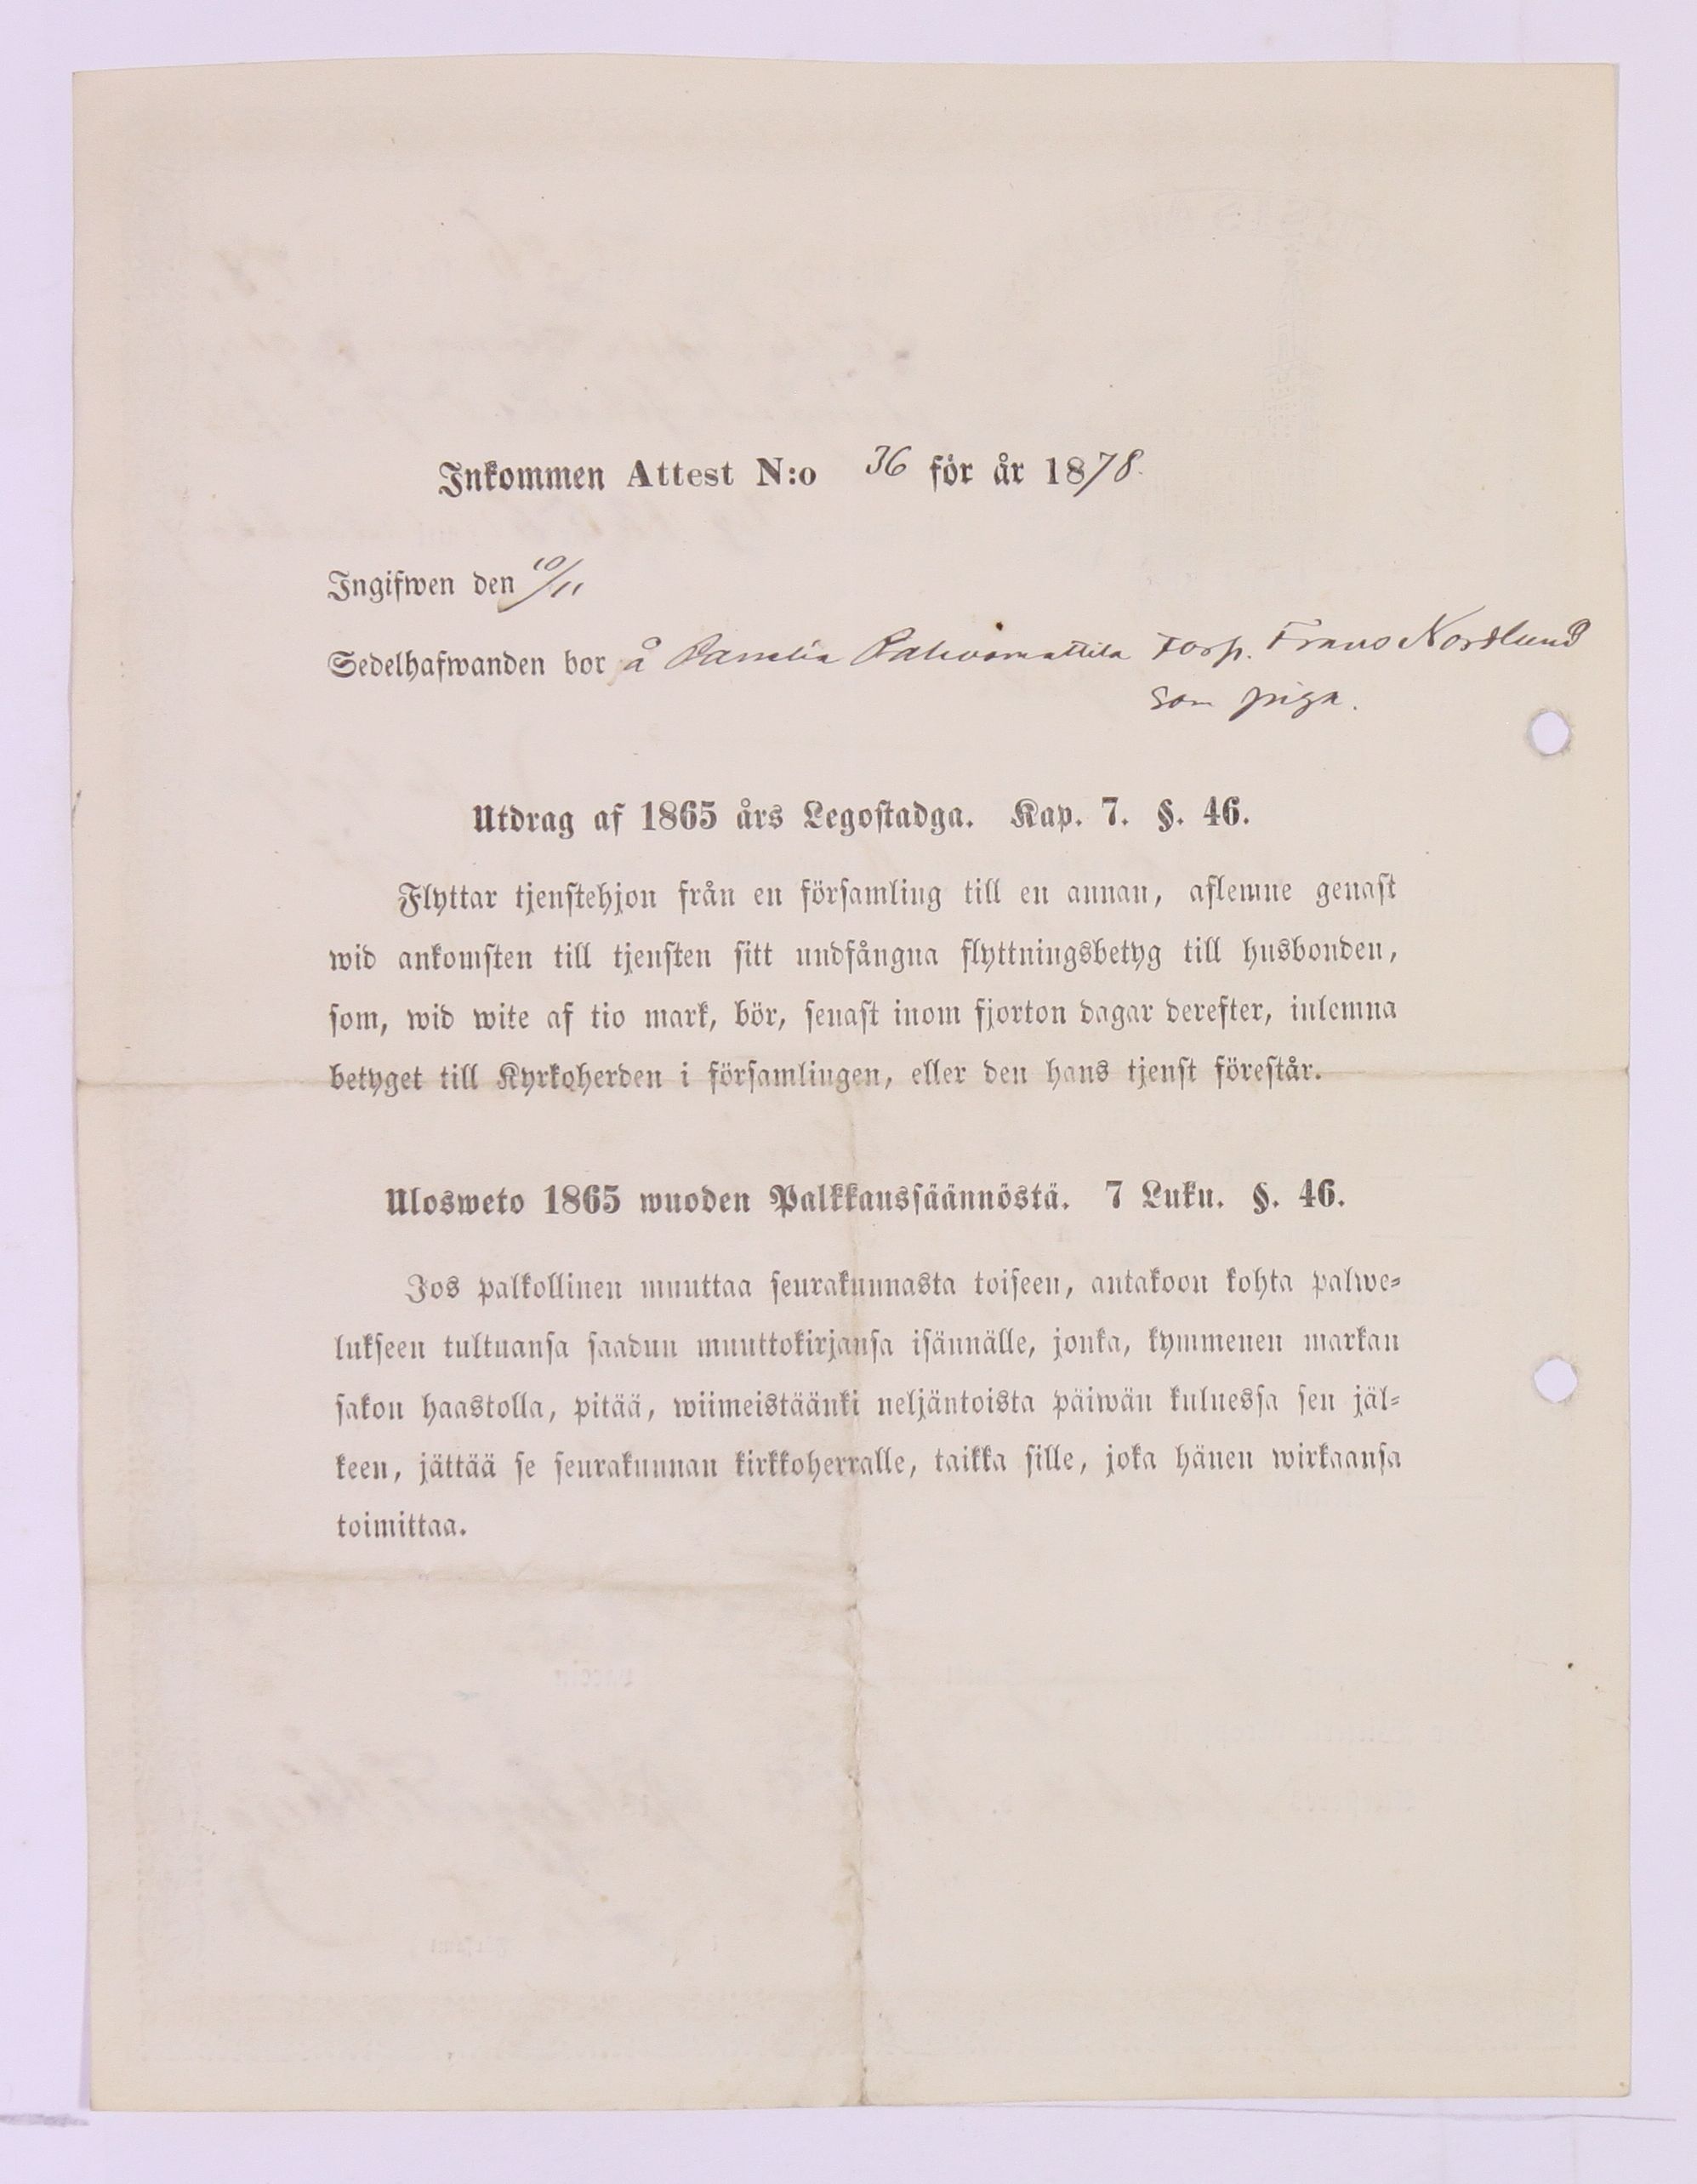 Inkommen Attest N:o 36 för år 1878.
Ingifwen den 10/11
Sedelhafwanden bor å Torp. Frans Nordlund
som piga.
Utdrag af 1865 års Legostadga. Kap. 7. §. 46.
Flyttar tjenstehjon från en församling till en annan, aflemne genast
wid ankomsten till tjensten sitt undfångna flyttningsbetyg till husbonden,
som, wid wite af tio mark, bör, senast inom fjorton dagar derefter, inlemna
betyget till Kyrkoherden i församlingen, eller den hans tjenst förestår.
Ulosweto 1865 wuoden Palkkaussäännöstä. 7 Luku. §. 46.
Jos palkollinen muuttaa seurakunnasta toiseen, antakoon kohta palwe-
lukseen tultuansa saadun muuttokirjansa isännälle, jonka, kymmenen markan
sakon haastolla, pitää, wiimeistäänki neljäntoista päiwän kuluessa sen jäl-
keen, jättää se seurakunnan kirkkoherralle, taikka sille, joka hänen wirkaansa
toimittaa.